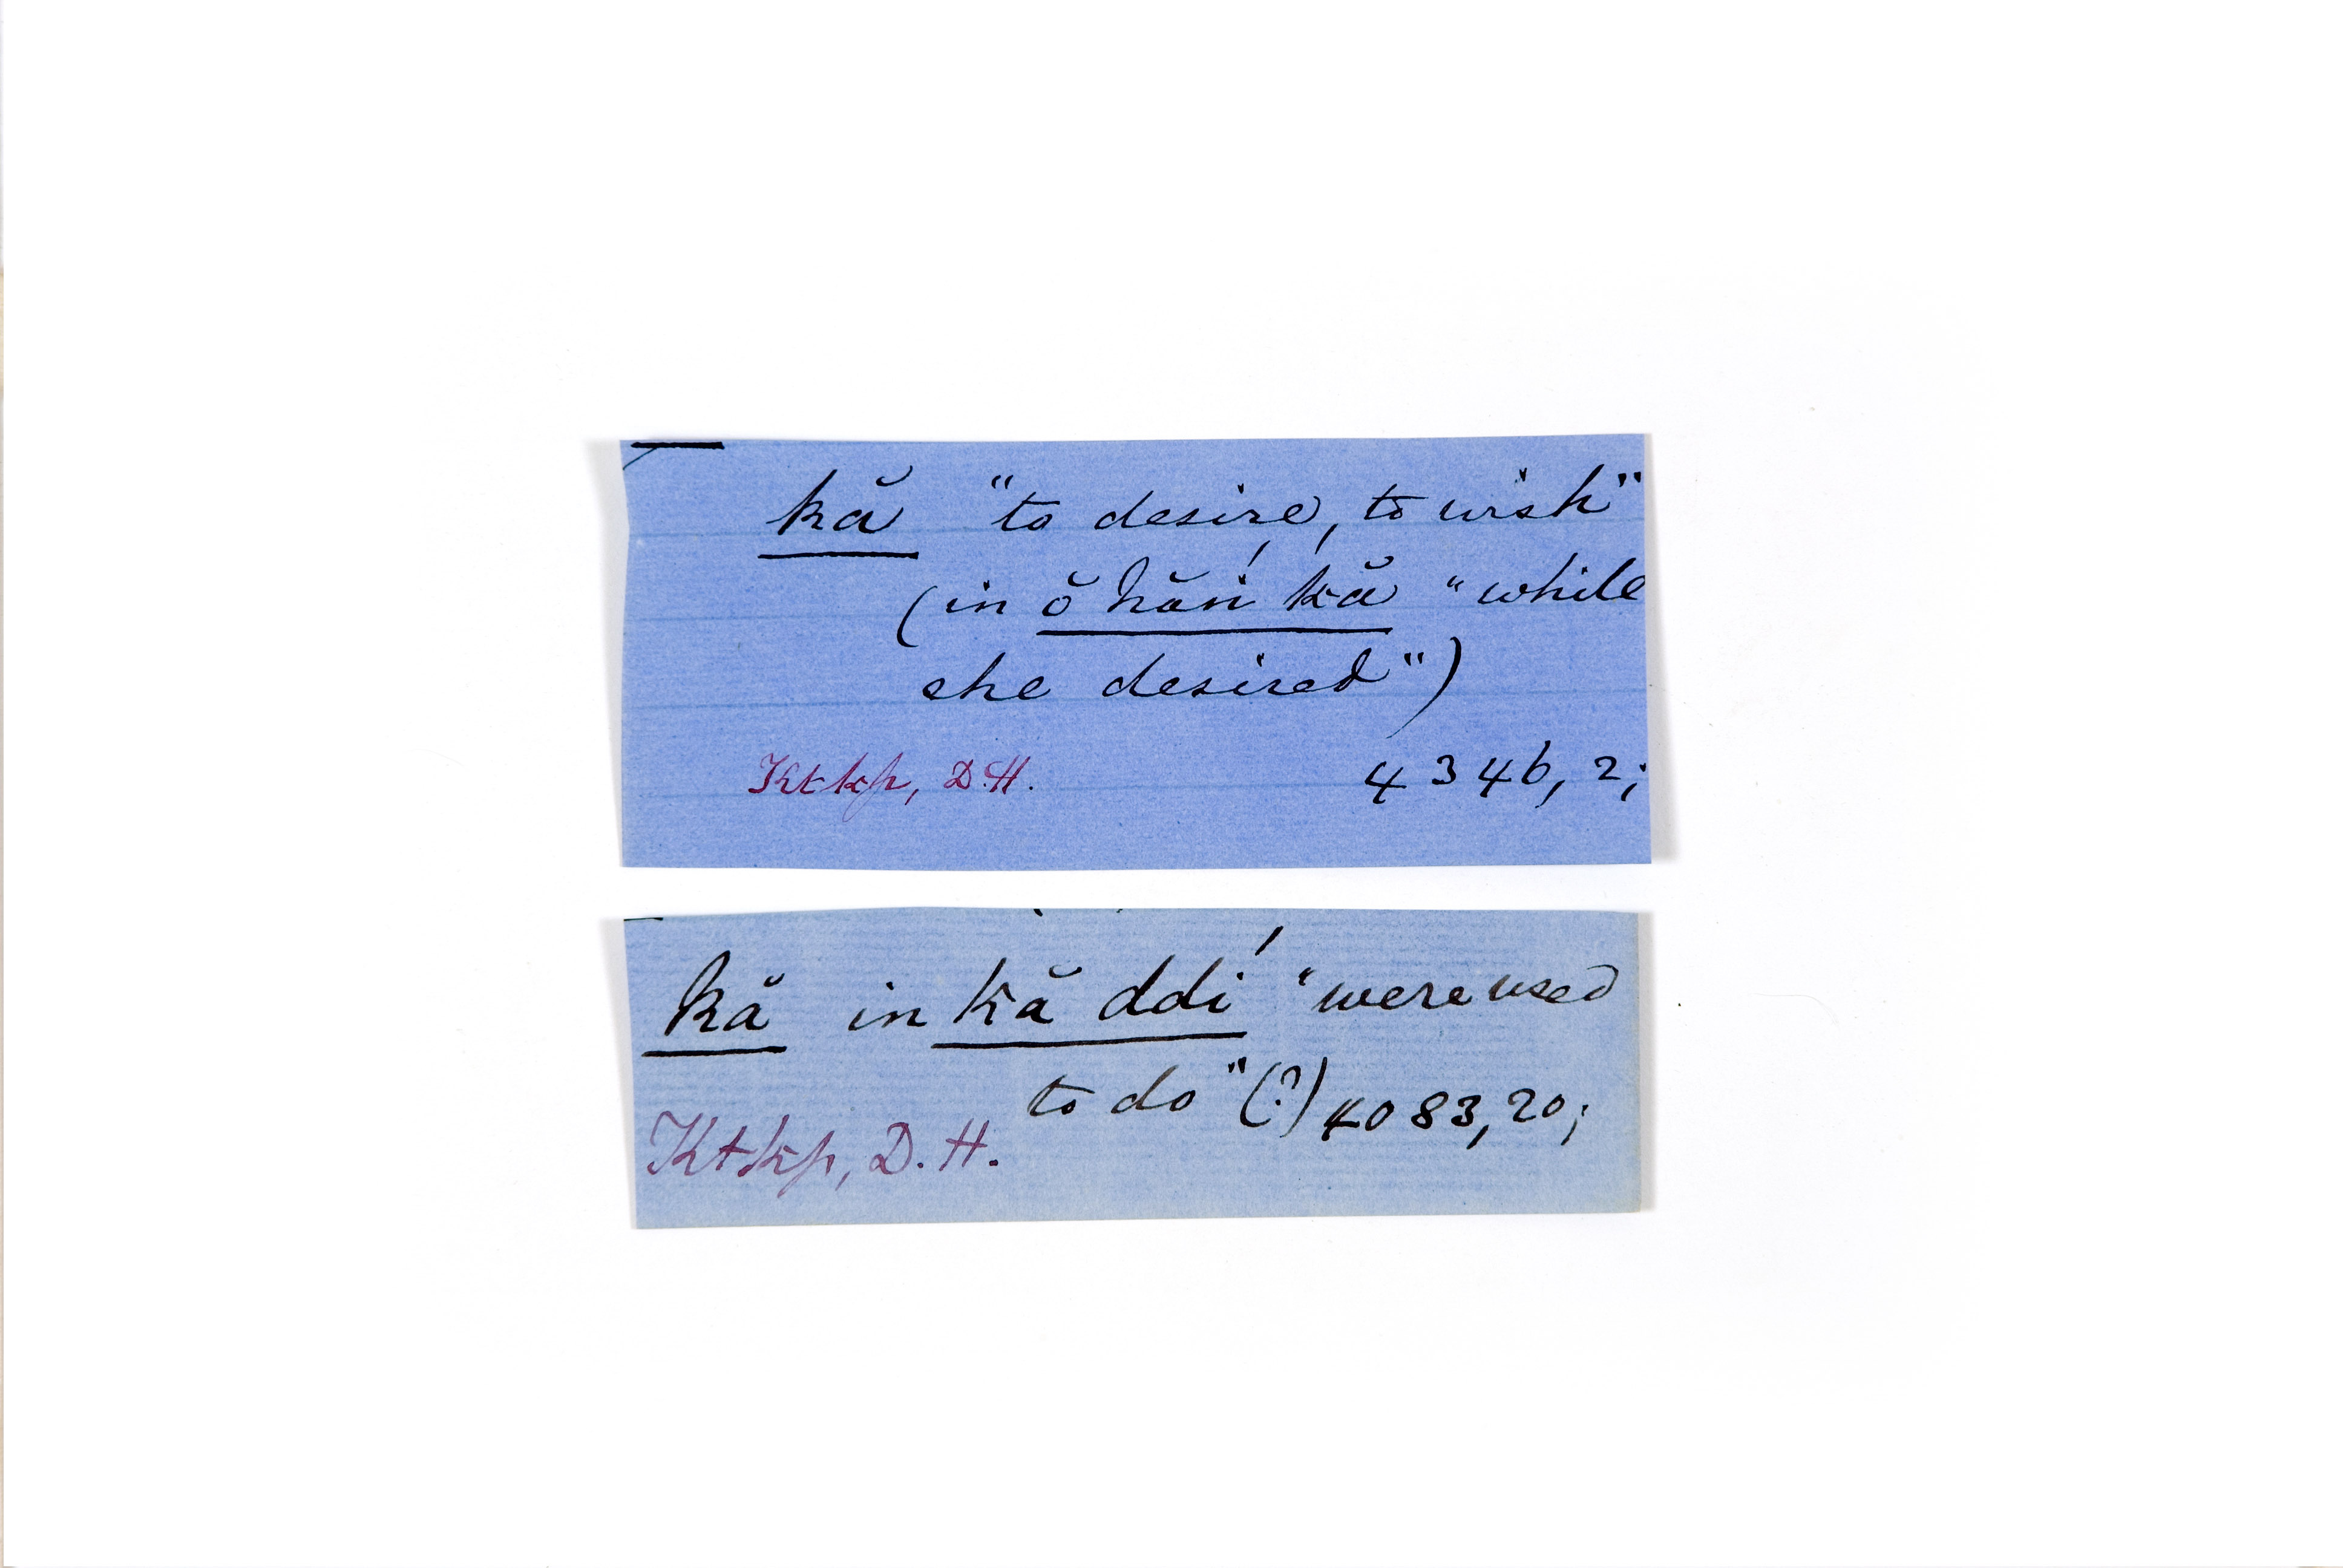 kă "to desire, to wish"
(in ŏ hăṅ́ kă "while
she desired")
Ktkp, D.H. 4346, 2;
kă in kă ddí "were used
to do" (?) 4083, 20;
Ktkp, D. H.